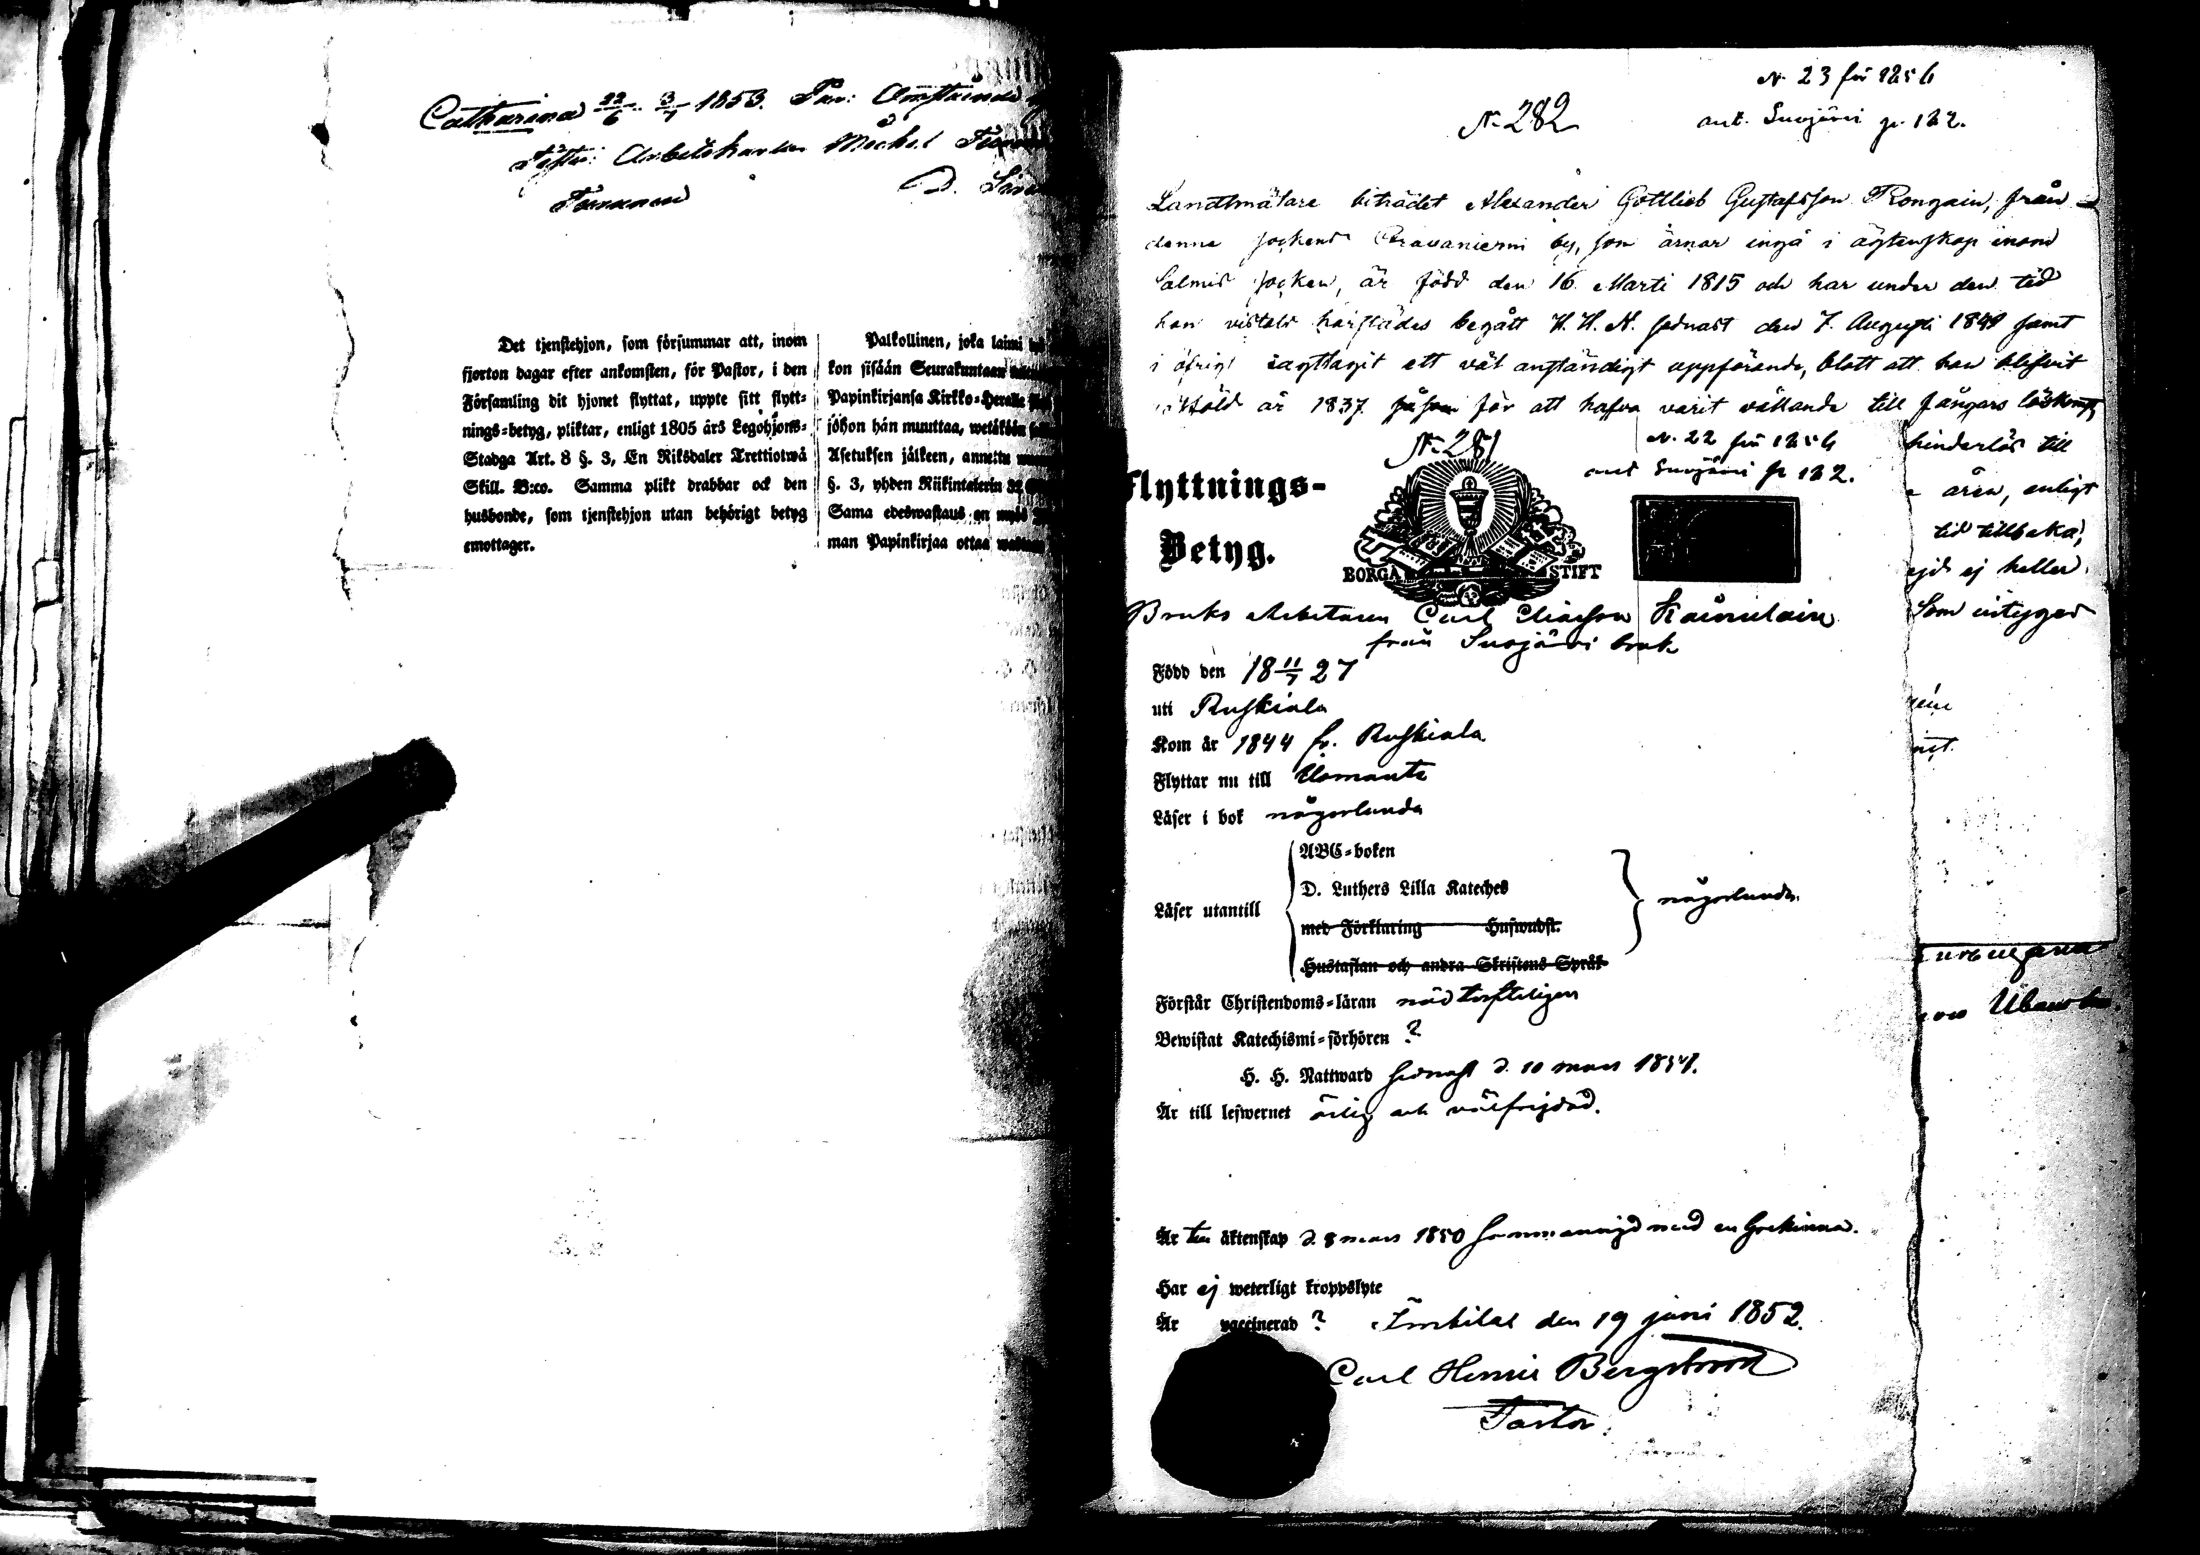 Catharina 22/6 3/7 1853.
Arbetskarlen Michel
Det tjenstehjon, som försummar att, inom
fjorton dagar efter ankomsten, för Pastor, i den
Församling dit hjonet flyttat, uppte sitt flytt-
nings-betyg, pliktar, enligt 1805 års Legohjons-
Stadga Art. 8 §. 3, En Riksdaler Trettiotwå
Skill. B:co. Samma plikt drabbar ock den
husbonde, som tjenstehjon utan behörigt betyg
emottager.
Palkollinen, joka laimi
kon sisään Seurakuntaan
Papinkirjansa Kirkko-Herralle
jöhon hän muuttaa, wetäköön
Asetuksen jälkeen, annettu
§. 3, yhden Riikintalerin 32
Sama edeswastaus on myös
man Papinkirjaa ottaa
N. 23 för 1856
N. 282
ant. Suojärvi p. 122.
Landtmätare biträdet Alexander Gottlieb Gustafsson Rongain, från
denna sockens by, som ärnar ingå i ägtenskap inom
Salmis socken, är född den 16 Marti 1815 och har under den tid
han vistats härstädes begått H. H. N. sednast den 7. Augusti 1849 samt
i öfrigt iagttagit ett väl anständigt uppförande, blott att han blifvit
år 1837 för att hafva varit vållande till fångars
hinderlös till
åren, enligt
tid tillbaka,
ej heller
Som intygas
N. 281
N. 22 för 1856
ant Suojärvi p 122.
Flyttnings-
Betyg.
BORGÅ STIFT
Bruks Arbetaren Carl Eliasson
från Suojärvi bruk
Född den 18 11/7 27
uti Ruskiala
Kom år 1844 fr. Ruskiala
Flyttar nu till Ilomants
Läser i bok någorlunda
Läser utantill
ABC-boken
D. Luthers Lilla Kateches
med Förklaring Huswudst.
Hustaflan och andra Skriftens Språk
någorlunda.
Förstår Christendoms-läran nödtorfteligen
Bewistat Katechismi-förhören ?
H. H. Nattward sednast d. 10 mars 1851.
Är till lefwernet ärlig och välfrejdad.
Är äktenskap d. 8 mars 1850 sammanvigd med en Grekinna.
Har ej weterligt kroppslyte
Är vaccinerad ? Imbilax den 19 juni 1852.
Carl Henric Bergstrood
Pastor.